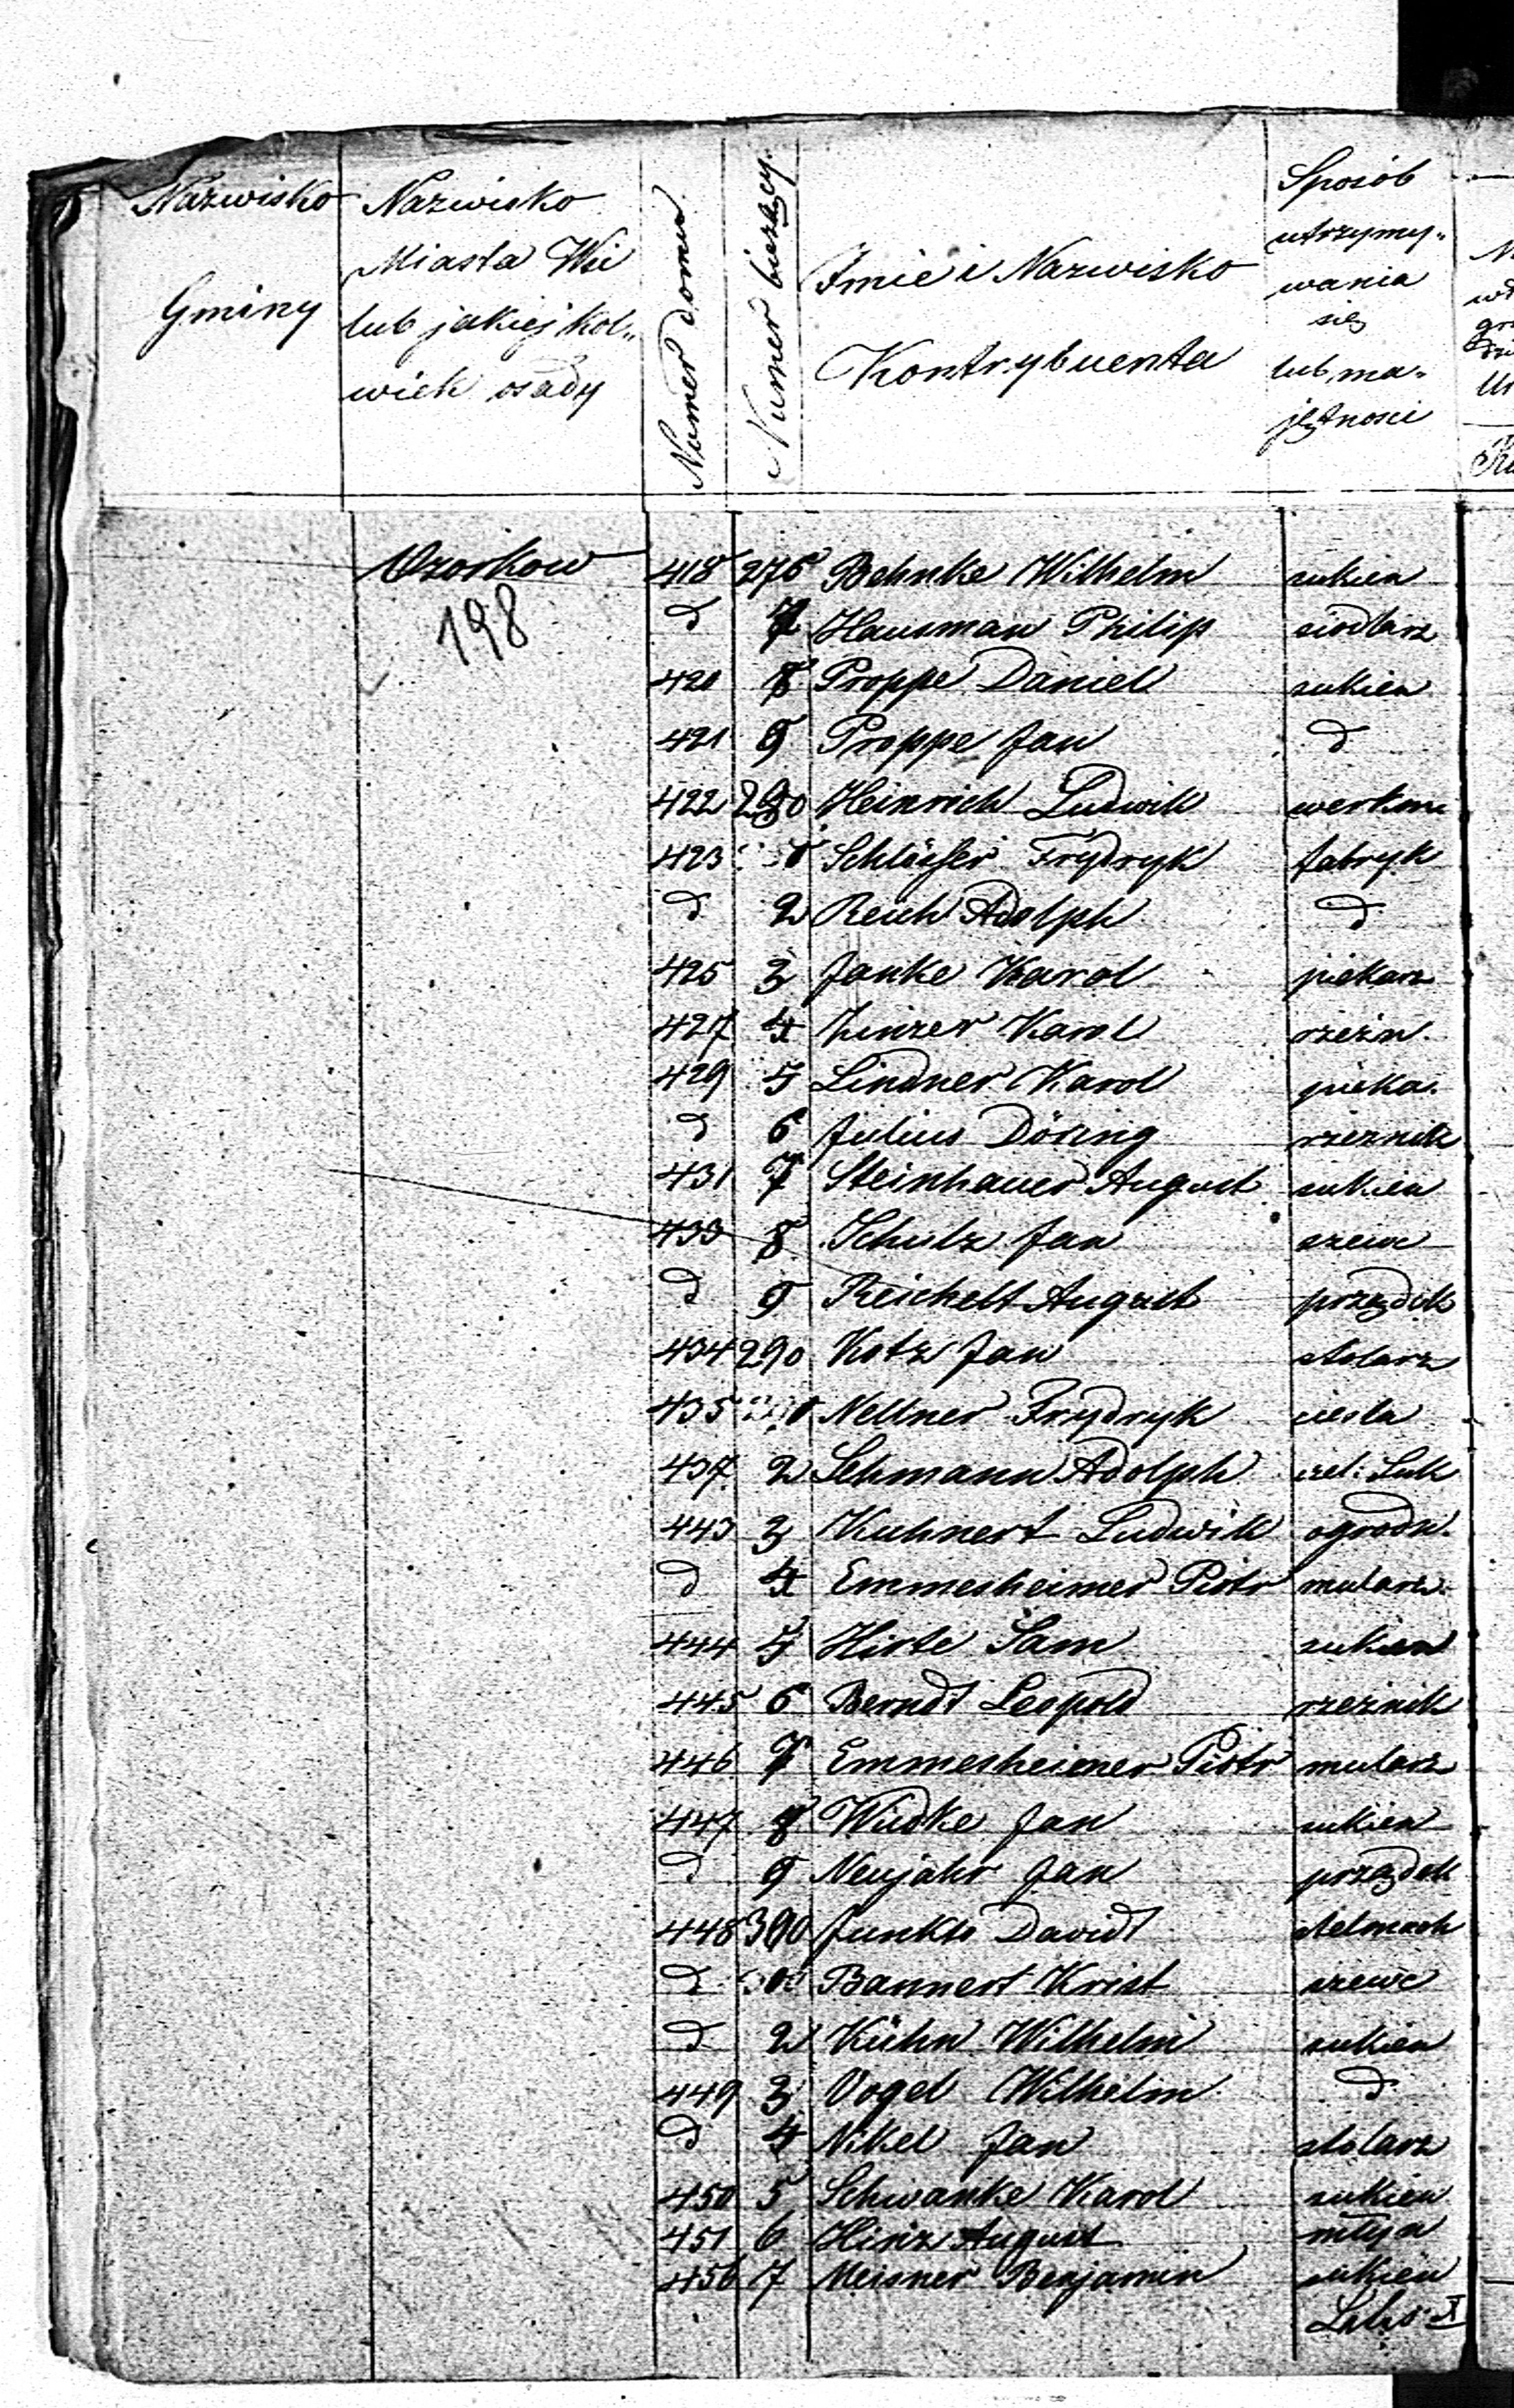 Nazwisko Gminy
Nazwisko Miasta Wsi lub jakiejkol„ wiek osady
Numer domu
Numer bieżący.
Imie i Nazwisko Kontrybuenta
Sposób utrzymy„ wania się lub ma„ jętnosci
Ozorkow 418 276 Behnke Wilhelm sukien
198
d 7 Hausman Philip siodlarz
420 8 Proppe Daniel sukien
421 9 Proppe Jan d
422 280 Heinrich Ludwik werkm
423 Schlösser Frydryk fabryk
d 2 Reich Adolph d
425 3 Janke Karol piekarz
427 4 Linzer Karol rzeźn.
429 5 Lindner Karol pieka.
d 6 Julius Döring rzeznik
431 7 Steinhauer August sukien
433 8 Schulz Jan szewc
d 9 Reichelt August przędok
434 290 Kotz Jan stolarz
435 Nellner Frydryk ciesla
437 2 Lehmann Adolph czel: Suk
443 3 Kuhnert Ludwik ogrodn.
d 4 Emmesheimer Piotr mularz
444 5 Hirte Sam sukien
445 6 Berndt Leopold rzeźnik
446 7 Emmesheimer Piotr mularz
447 8 Wudke Jan sukien
d 9 Neujahr Jan przędok
448 300 Junkto David stelmach
d Bannert Krist szewc
d 2 Kühn Wilhelm sukien
449 3 Vogel Wilhelm d
d 4 Nikel Jan stolarz
450 5 Schwanke Karol sukien
451 6 Hinz August młyn
456 7 Meisner Benjamin sukien